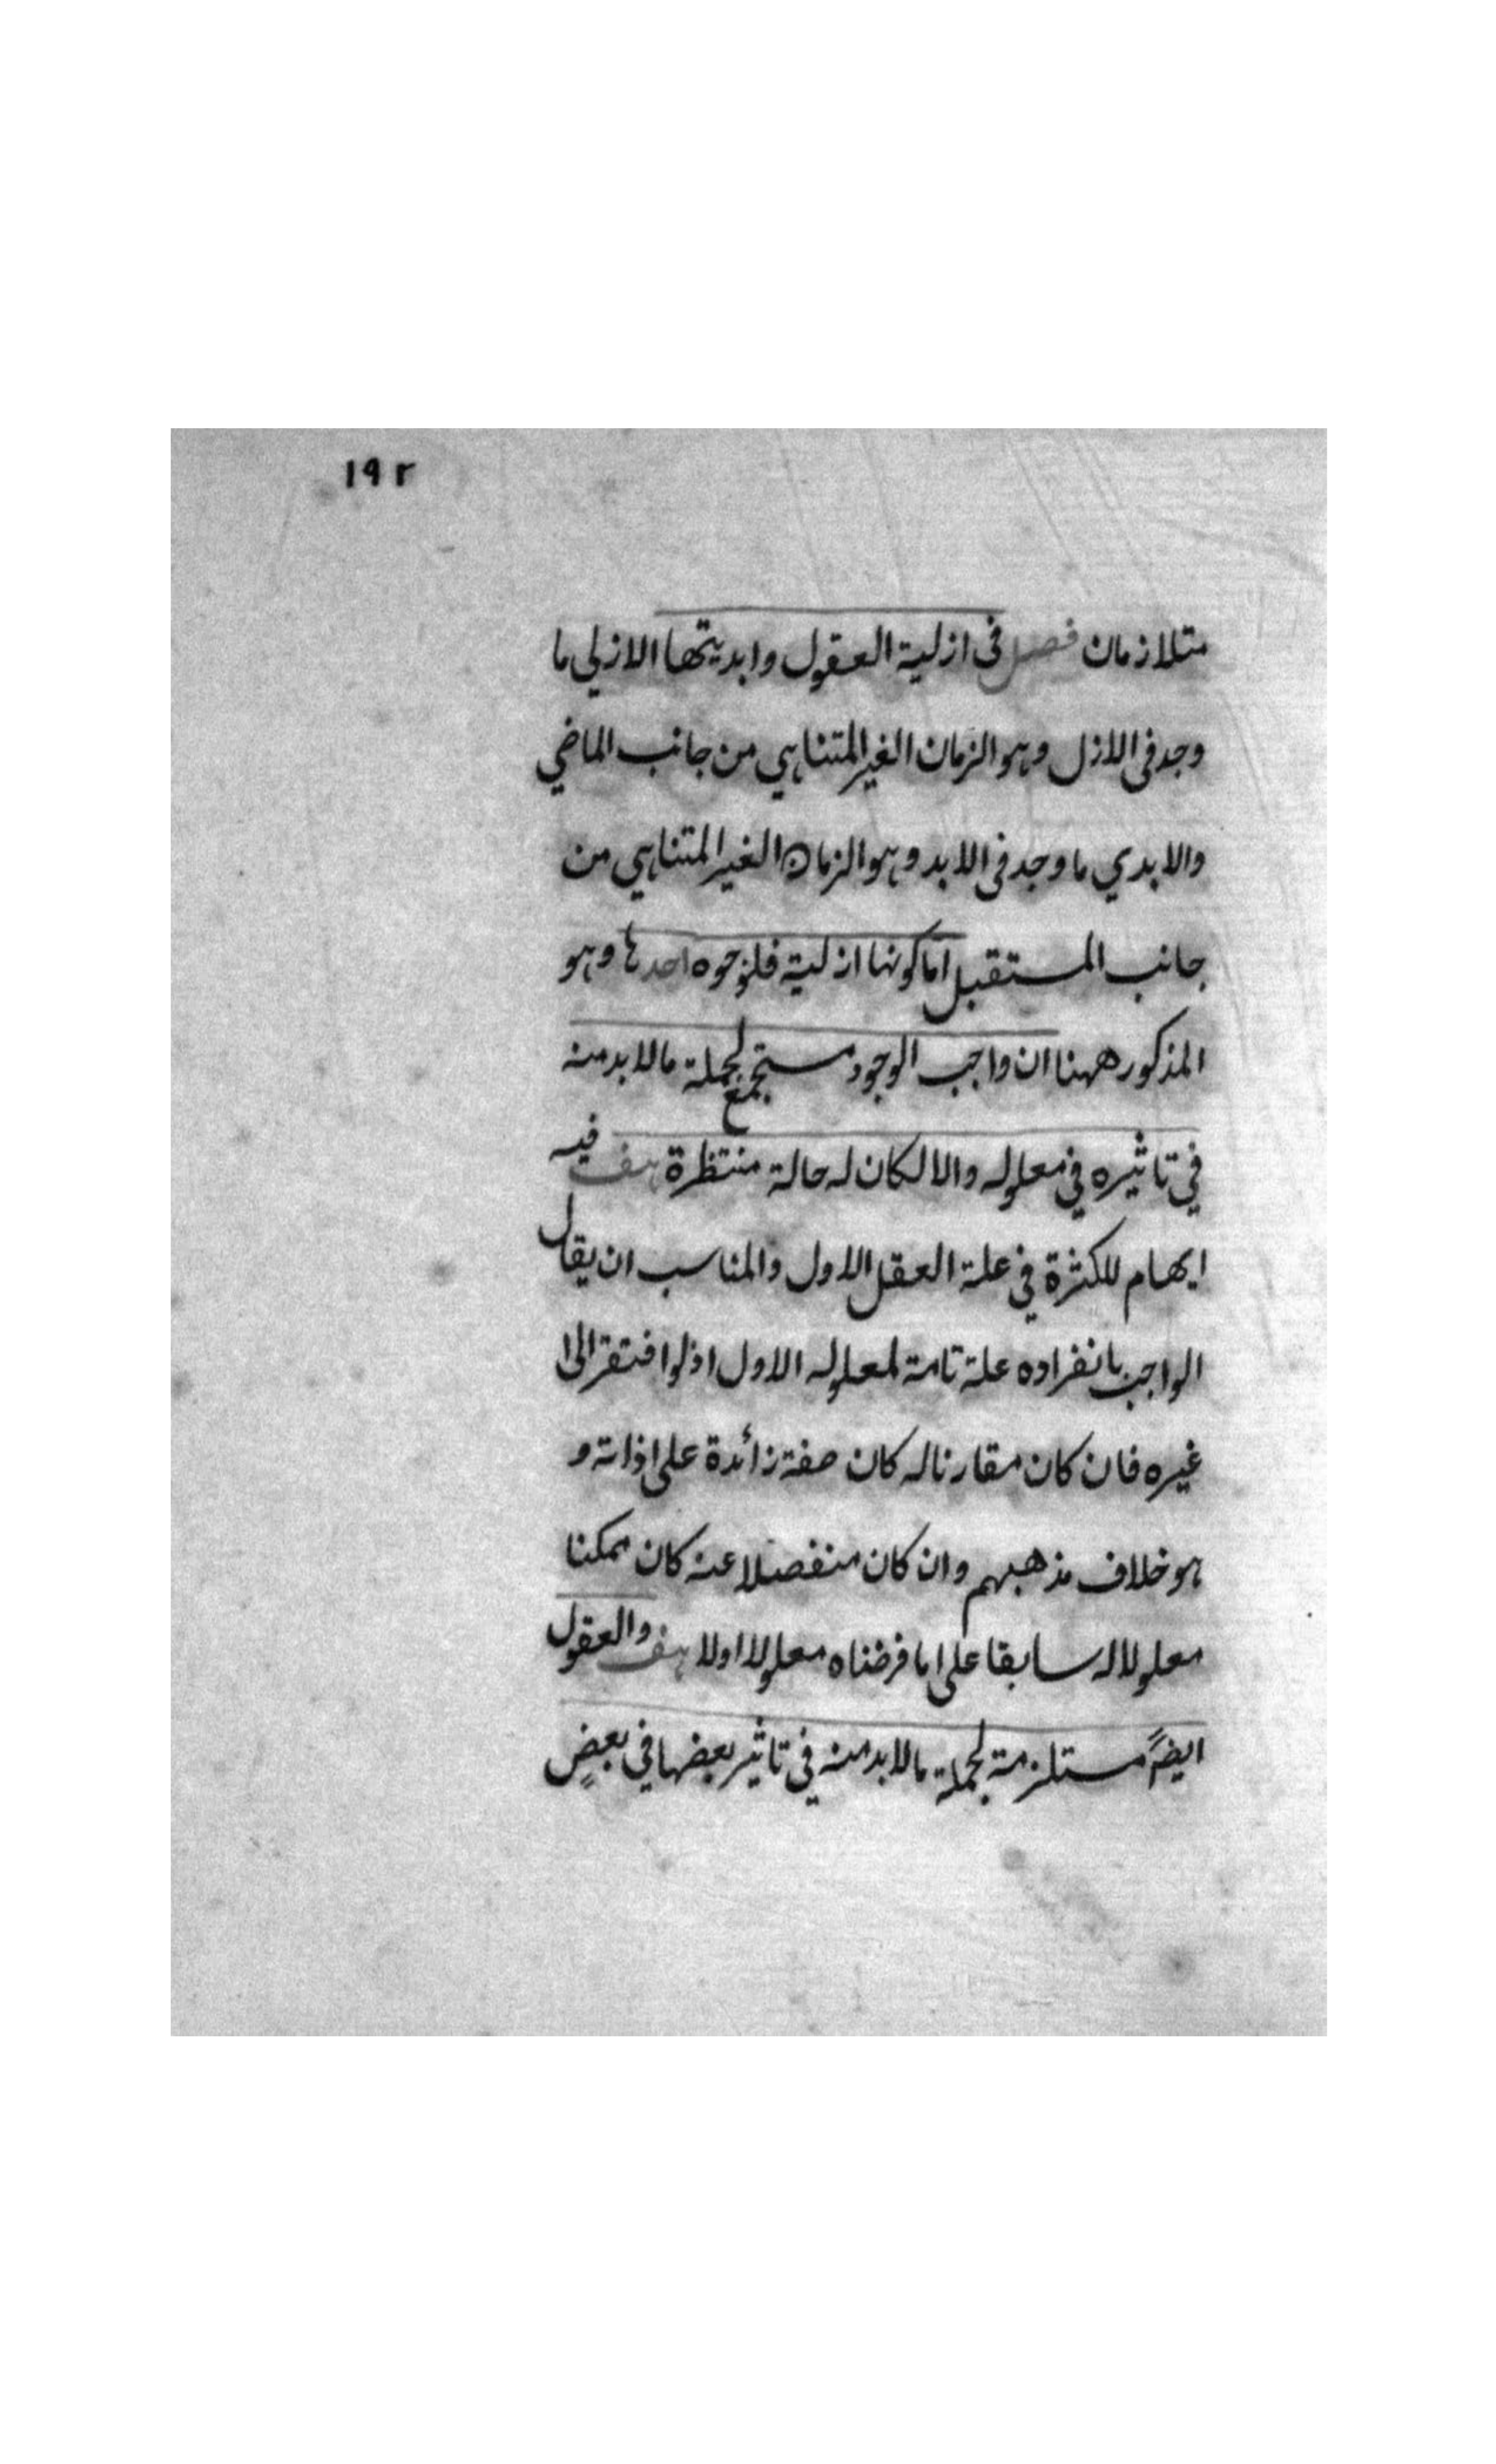 ١٩٢
متلازمان فصل فى ازلية العقول وابديتها الازلي ما
وجد فى الازل وهو الزمان الغير المتناهي من جانب الماضي
والابدي ما وجد فى الابد وهو الزمان الغير المتناهي من
جانب المستقبل اما كونها ازلية فلوجوه احدها وهو
المذكور ههنا ان واجب الوجود مستجمع لجملة مالابد منه
في تاثيره في معلوله والا لكان له حالة منتظرة هف فيه
ايهام للكثرة في علة العقل الاول والمناسب ان يقال
الواجب بانفراده علة تامة لمعلوله الاول اذ لو افتقر الى
غيره فان كان مقارنا له كان صفة زائدة على ذاته و
هو خلاف مذهبهم وان كان منفصلا عنه كان ممكنا
معلولا له سابقا على ما فرضناه معلولا اولا هف والعقول
ايضً مستلزمة لجملة مالابد منه في تاثير بعضها في بعضٍ